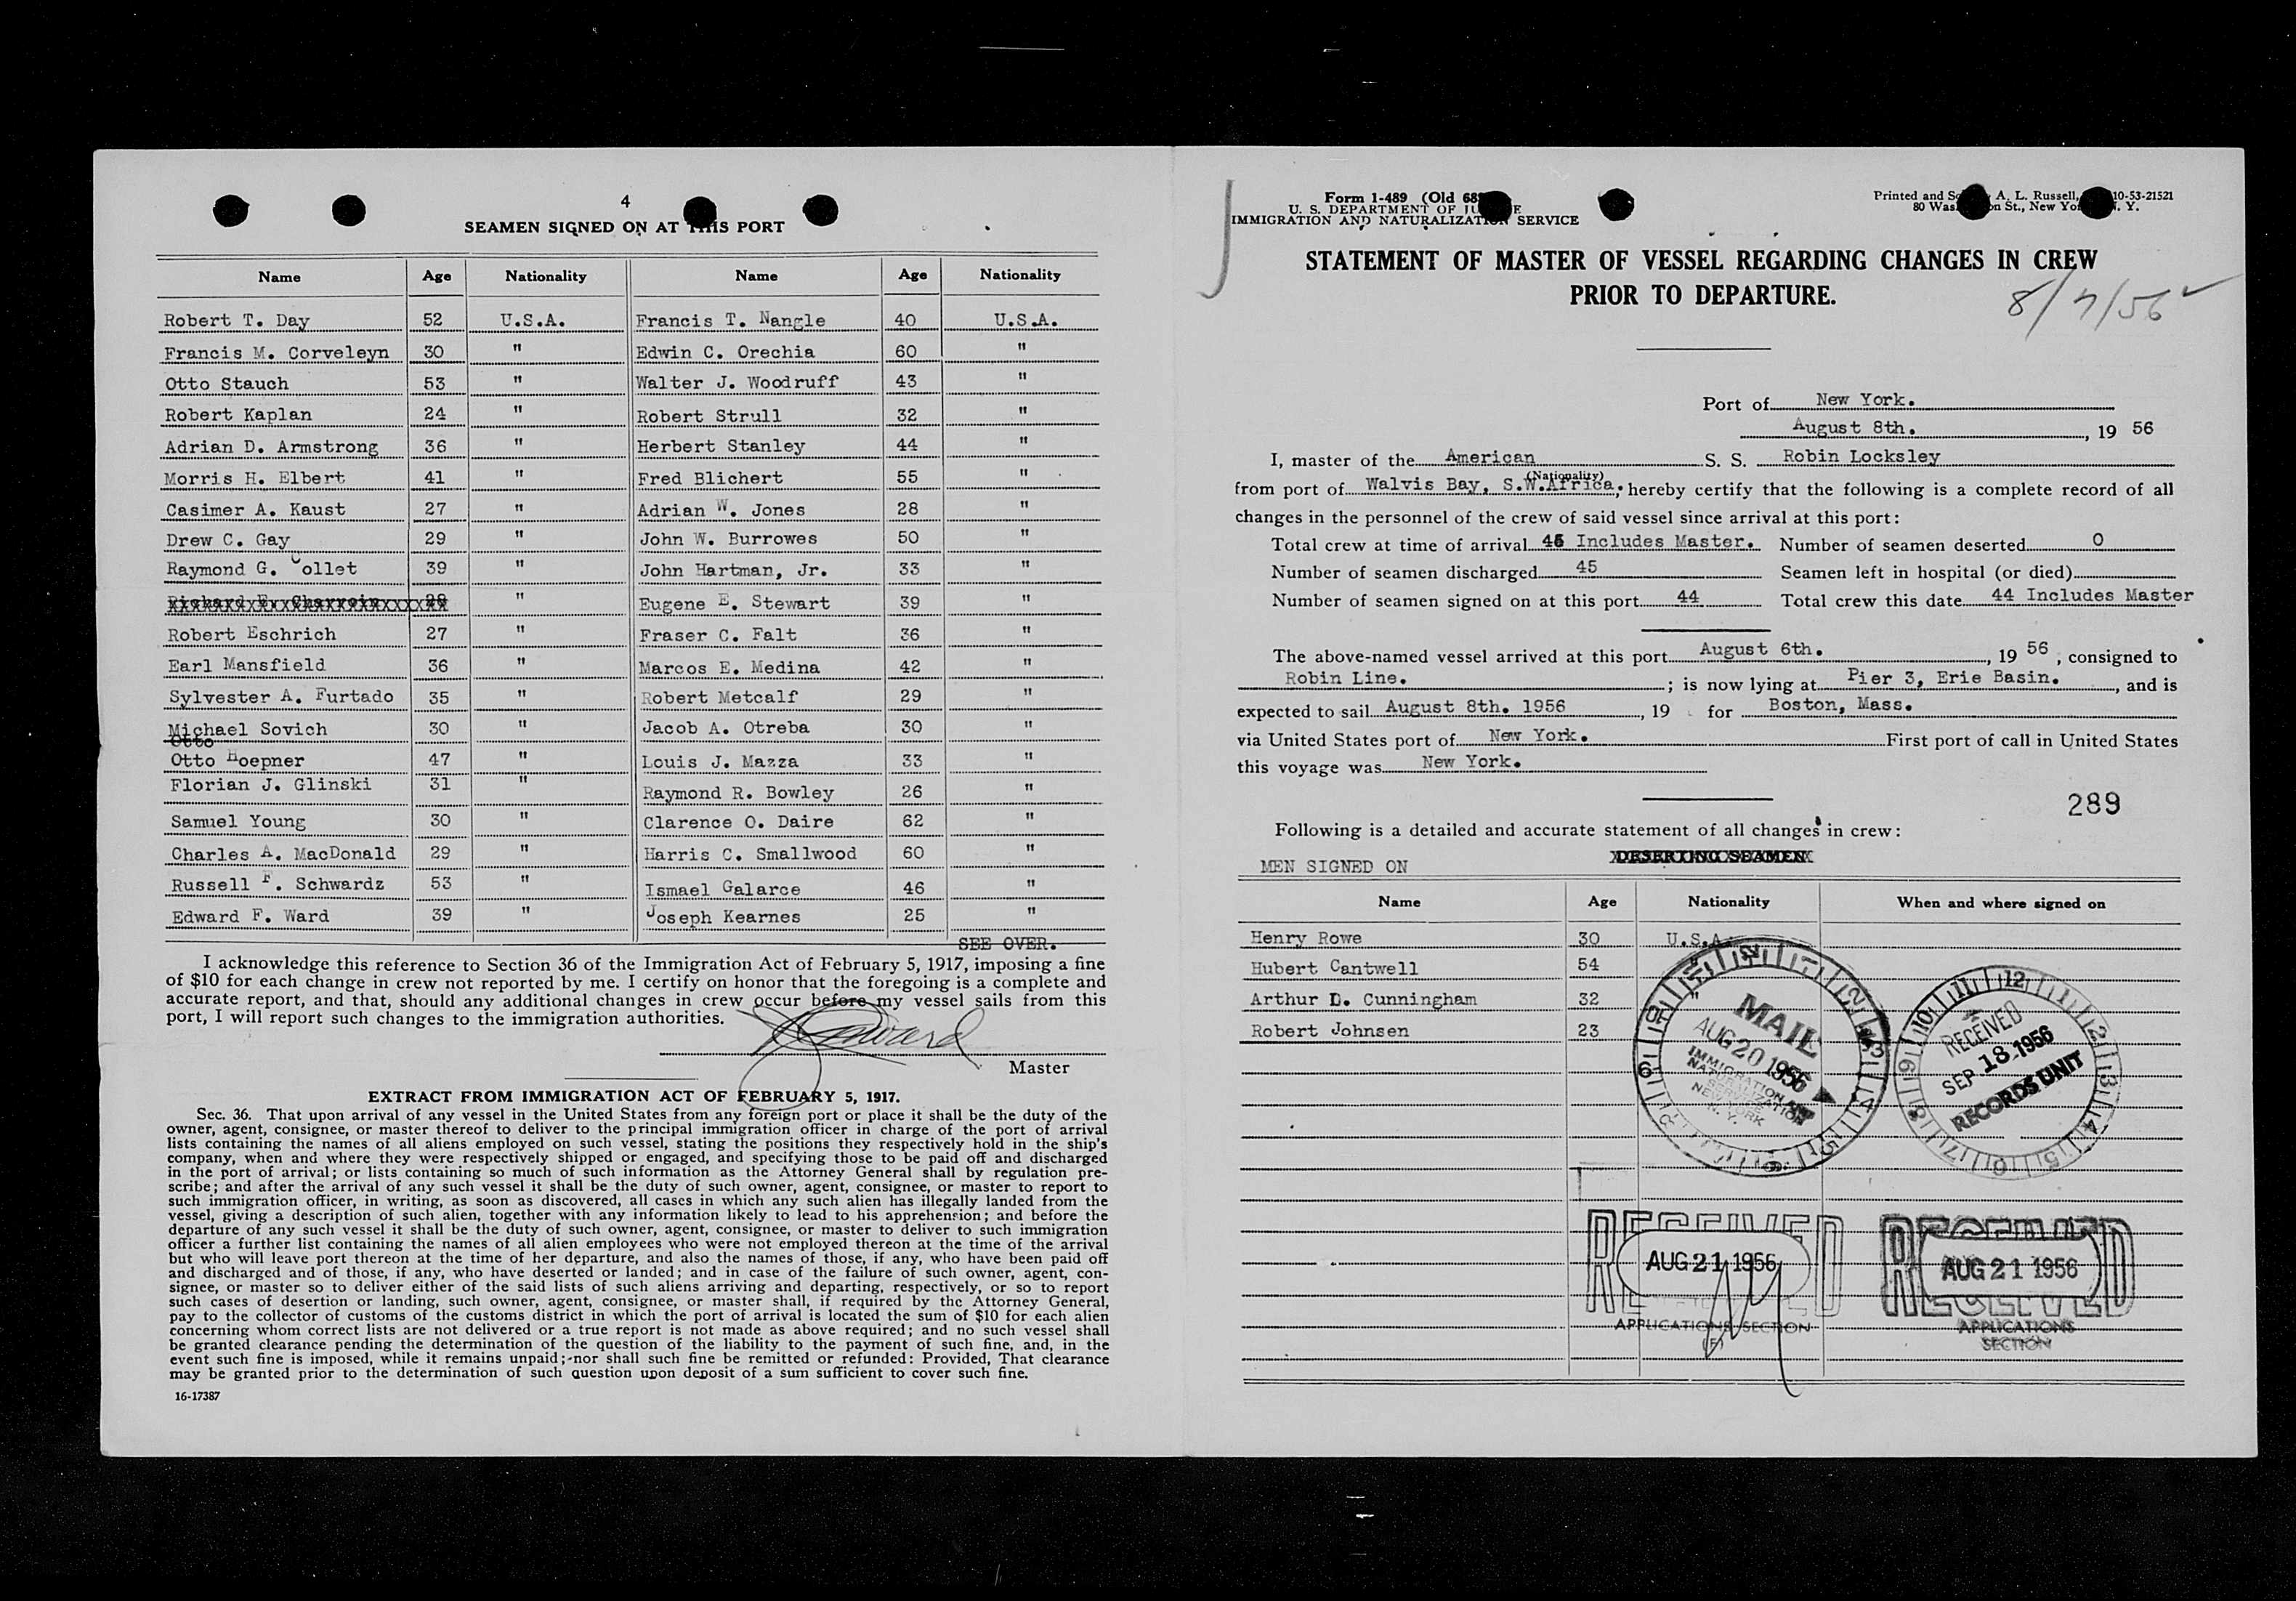 4
SEAMEN SIGNED ON AT THIS PORT
Name Age Nationality Name Age Nationality
Robert T. Day 52 U.S.A. Francis T. Nangle 40 U.S.A.
Francis M. Corveleyn 30 " Edwin C. Orechia 60 "
Otto Stauch 53 " Walter J. Woodruff 43 "
Robert Kaplan 24 " Robert Strull 32 "
Adrian D. Armstrong 36 " Herbert Stanley 44 "
Morris H. Elbert 41 " Fred Blichert 55 "
Casimer A. Kaust 27 " Adrian W. Jones 28 "
Drew C. Gay 29 " John W. Burrowes 50 "
Raymond G. Collet 39 " John Hartman, Jr. 33 "
" Eugene E. Stewart 39 "
Robert Eschrich 27 " Fraser C. Falt 36 "
Earl Mansfield 36 " Marcos E. Medina 42 "
Sylvester A. Furtado 35 " Robert Metcalf 29 "
Michael Sovich 30 " Jacob A. Otreba 30 "
Otto
Otto Hoepner 47 " Louis J. Mazza 33 "
Florian J. Glinski 31 " Raymond R. Bowley 26 "
Samuel Young 30 " Clarence O. Daire 62 "
Charles A. MacDonald 29 " Harris C. Smallwood 60 "
Russell F. Schwardz 53 " Ismael Galarce 46 "
Edward F. Ward 39 " Joseph Kearnes 25 "
SEE OVER.
I acknowledge this reference to Section 36 of the Immigration Act of February 5, 1917, imposing a fine
of $10 for each change in crew not reported by me. I certify on honor that the foregoing is a complete and
accurate report, and that, should any additional changes in crew occur before my vessel sails from this
port, I will report such changes to the immigration authorities.
Master
EXTRACT FROM IMMIGRATION ACT OF FEBRUARY 5, 1917.
Sec. 36. That upon arrival of any vessel in the United States from any foreign port or place it shall be the duty of the
owner, agent, consignee, or master thereof to deliver to the principal immigration officer in charge of the port of arrival
lists containing the names of all aliens employed on such vessel, stating the positions they respectively hold in the ship's
company, when and where they were respectively shipped or engaged, and specifying those to be paid off and discharged
in the port of arrival; or lists containing so much of such information as the Attorney General shall by regulation pre-
scribe; and after the arrival of any such vessel it shall be the duty of such owner, agent, consignee, or master to report to
such immigration officer, in writing, as soon as discovered, all cases in which any such alien has illegally landed from the
vessel, giving a description of such alien, together with any information likely to lead to his apprehension; and before the
departure of any such vessel it shall be the duty of such owner, agent, consignee, or master to deliver to such immigration
officer a further list containing the names of all alien employees who were not employed thereon at the time of the arrival
but who will leave port thereon at the time of her departure, and also the names of those, if any, who have been paid off
and discharged and of those, if any, who have deserted or landed; and in case of the failure of such owner, agent, con-
signee, or master so to deliver either of the said lists of such aliens arriving and departing, respectively, or so to report
such cases of desertion or landing, such owner, agent, consignee, or master shall, if required by the Attorney General,
pay to the collector of customs of the customs district in which the port of arrival is located the sum of $10 for each alien
concerning whom correct lists are not delivered or a true report is not made as above required; and no such vessel shall
be granted clearance pending the determination of the question of the liability to the payment of such fine, and, in the
event such fine is imposed, while it remains unpaid; nor shall such fine be remitted or refunded: Provided, That clearance
may be granted prior to the determination of such question upon deposit of a sum sufficient to cover such fine.
16-17387
Form 1-489 (Old 68
U. S. DEPARTMENT OF JUSTICE
IMMIGRATION AND NATURALIZATION SERVICE
Printed and A. L. Russell, 10-53-21521
80 St., New York, N. Y.
STATEMENT OF MASTER OF VESSEL REGARDING CHANGES IN CREW
PRIOR TO DEPARTURE.
8/7/56
Port of New York.
August 8th. , 19 56
I, master of the American S. S. Robin Locksley
(Nationality)
from port of Walvis Bay, S.W.Africa. hereby certify that the following is a complete record of all
changes in the personnel of the crew of said vessel since arrival at this port:
Total crew at time of arrival 45 Includes Master. Number of seamen deserted 0
Number of seamen discharged 45 Seamen left in hospital (or died)
Number of seamen signed on at this port 44 Total crew this date 44 Includes Master
The above-named vessel arrived at this port August 6th. , 19 56 , consigned to
Robin Line. ; is now lying at Pier 3, Erie Basin. , and is
expected to sail August 8th. 1956 , 19 for Boston, Mass.
via United States port of New York. First port of call in United States
this voyage was New York.
289
Following is a detailed and accurate statement of all changes in crew:
DESERTING SEAMEN
MEN SIGNED ON
Name Age Nationality When and where signed on
Henry Rowe 30 U.S.A.
Hubert Cantwell 54
Arthur D. Cunningham 32 "
Robert Johnsen 23
MAIL
AUG 20 1956
IMMIGRATION AND
NATURALIZATION
SERVICE
NEW YORK
N. Y.
RECEIVED
SEP 18 1956
RECORDS UNIT
RECEIVED
AUG 21 1956
APPLICATIONS SECTION
(F)
RECEIVED
AUG 21 1956
APPLICATIONS
SECTION